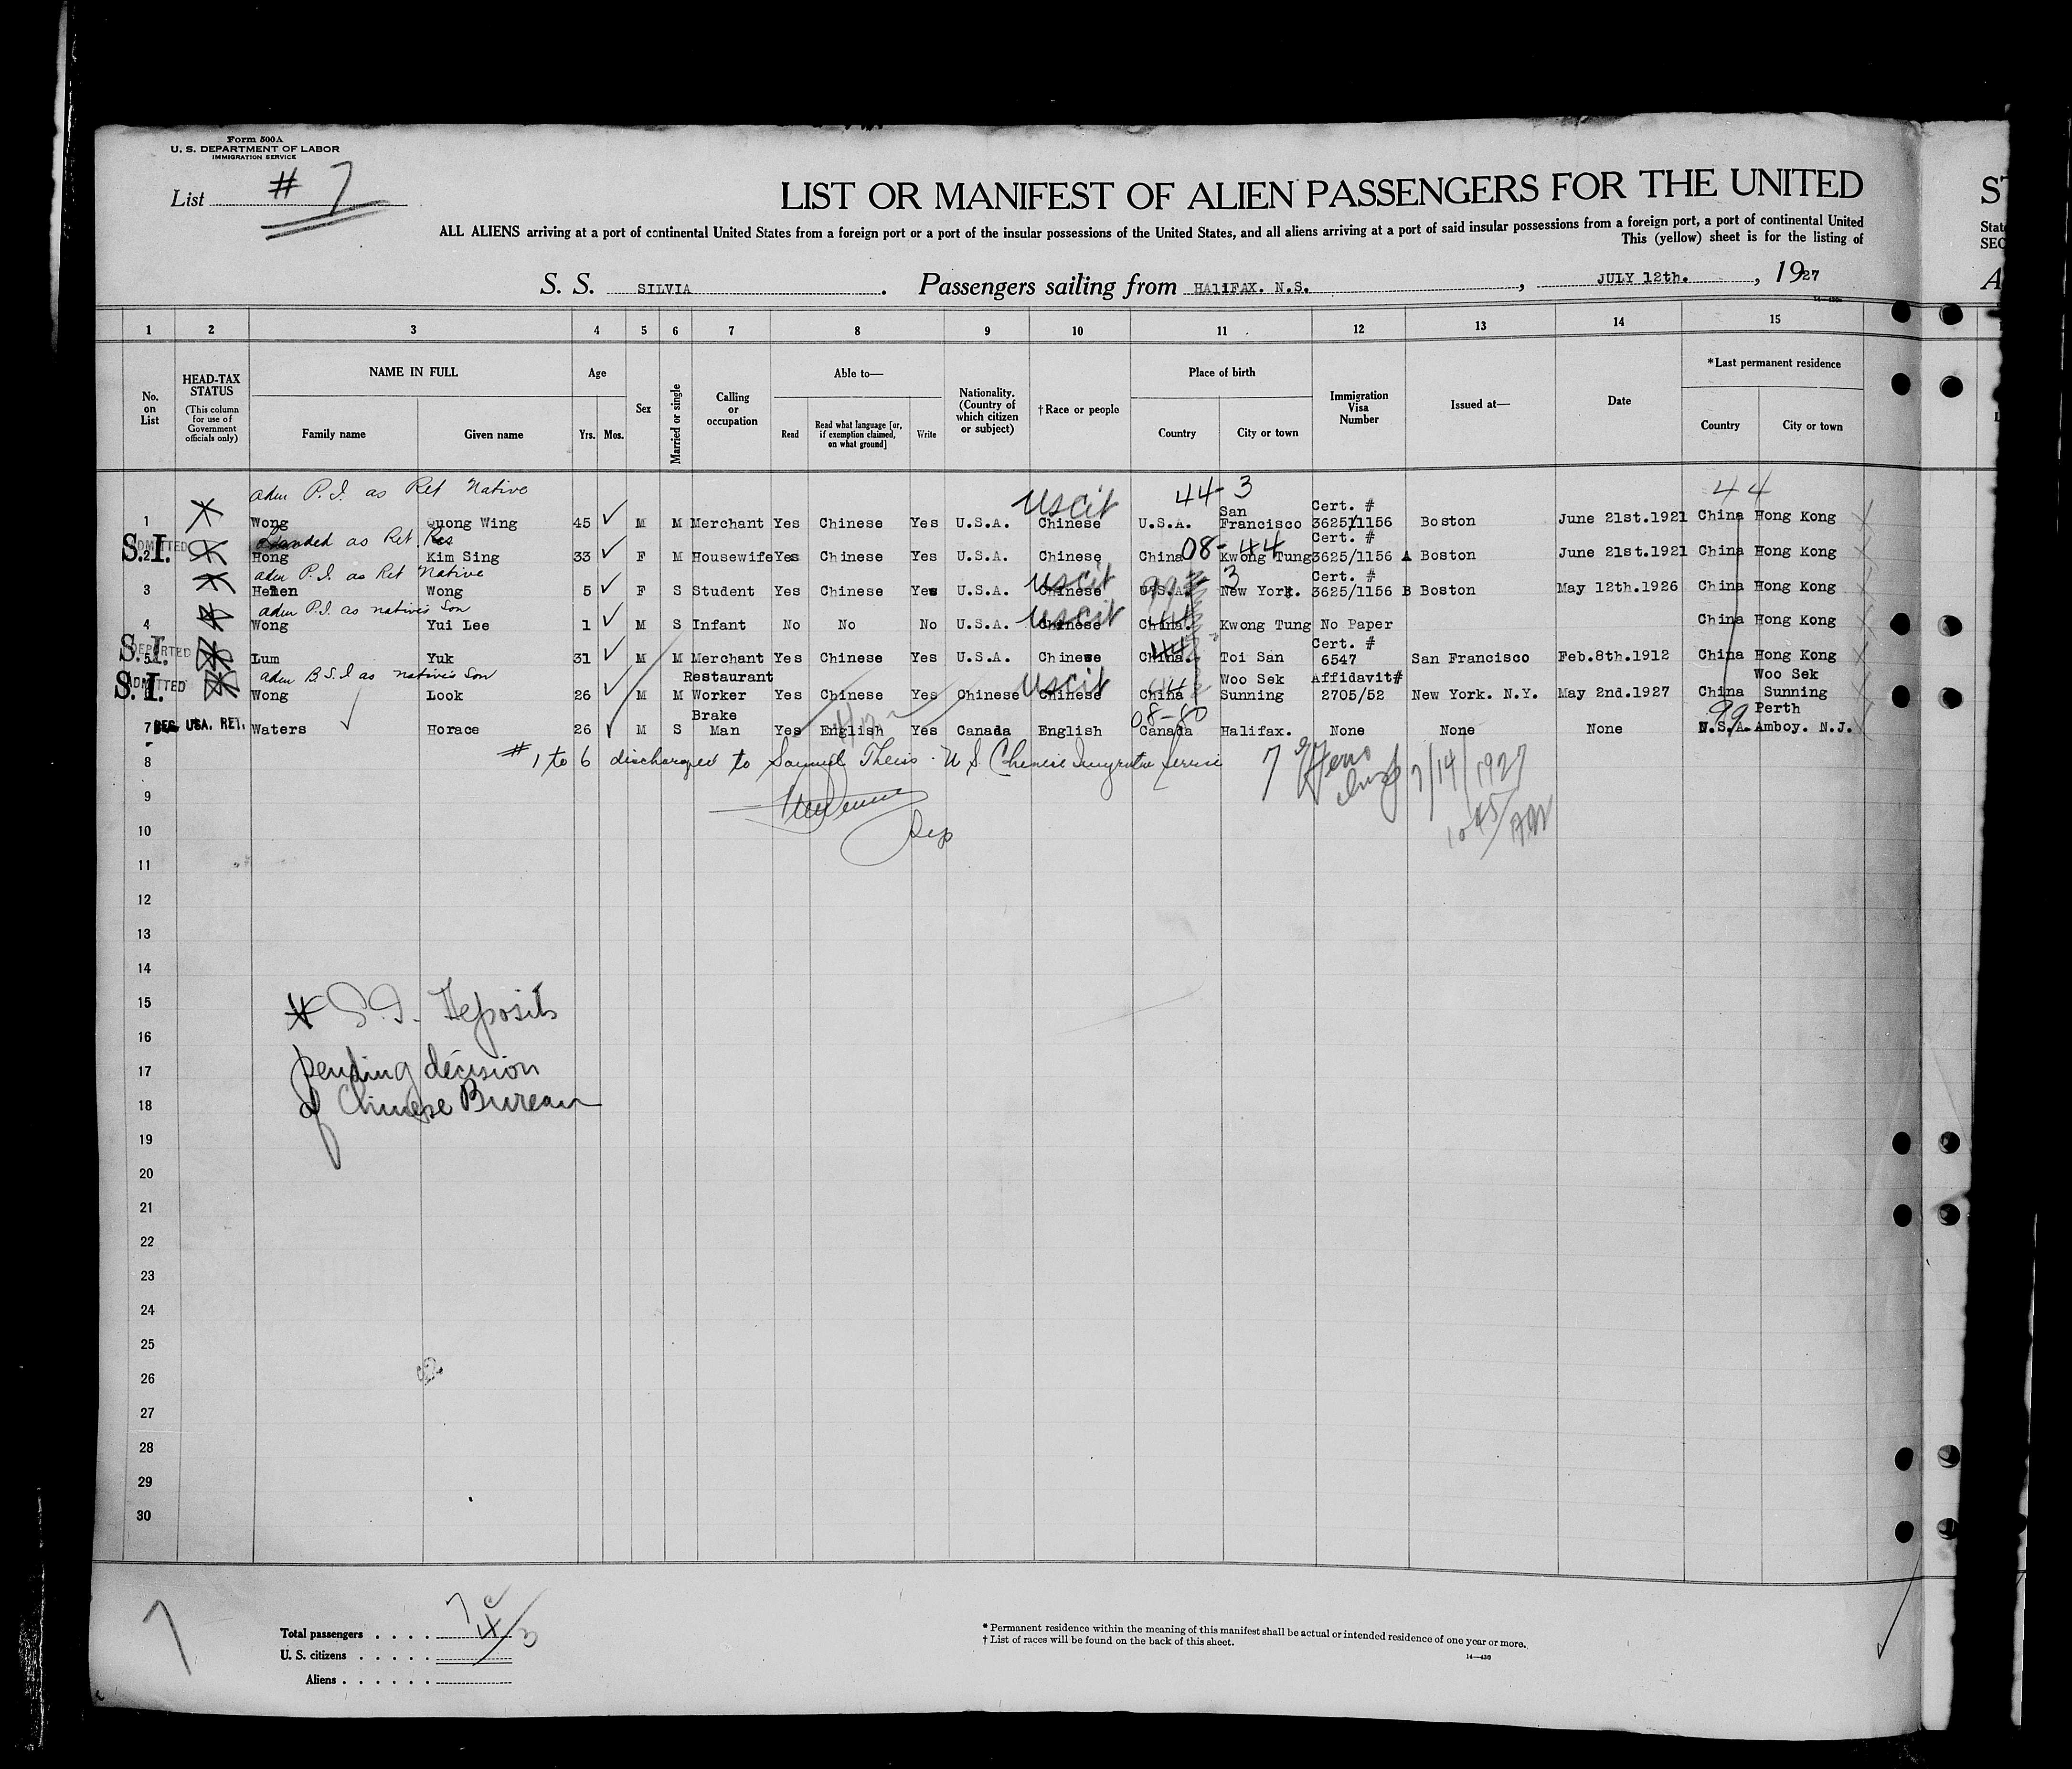 Form 500A
U. S. DEPARTMENT OF LABOR
IMMIGRATION SERVICE
List # 7
LIST OR MANIFEST OF ALIEN PASSENGERS FOR THE UNITED
ST
ALL ALIENS arriving at a port of continental United States from a foreign port or a port of the insular possessions of the United States, and all aliens arriving at a port of said insular possessions from a foreign port, a port of continental United
This (yellow) sheet is for the listing of
S. S. SILVIA. Passengers sailing from HAliFAX. N.S., JULY 12th., 1927
1 2 3 4 5 6 7 8 9 10 11 12 13 14 15
No. on List
HEAD-TAX STATUS
(This column for use of Government officials only)
NAME IN FULL
Family name
Given name
Age
Yrs. Mos.
Sex
Married or single
Calling or occupation
Able to—
Read
Read what language [or, if exemption claimed, on what ground]
Write
Nationality. (Country of which citizen or subject)
†Race or people
Place of birth
Country
City or town
Immigration Visa Number
Issued at—
Date
*Last permanent residence
Country
City or town
adm P.I. as Ret Native uscit 44 3 44
1 Wong Quong Wing 45 M M Merchant Yes Chinese Yes U.S.A. Chinese U.S.A. San Francisco Cert. # 3625/1156 Boston June 21st.1921 China Hong Kong
S.I. ADMITTED
Landed as Ret Res 08-44
2 Hong Kim Sing 33 F M Housewife Yes Chinese Yes U.S.A. Chinese China Kwong Tung Cert. # 3625/1156 A Boston June 21st.1921 China Hong Kong
adm P.I. as Ret Native uscit 3
3 Helen Wong 5 F S Student Yes Chinese Yes U.S.A. Chinese U.S.A. New York. Cert. # 3625/1156 B Boston May 12th.1926 China Hong Kong
adm P.I. as natives Son uscit
4 Wong Yui Lee 1 M S Infant No No No U.S.A. Chinese China. Kwong Tung No Paper China Hong Kong
S.I. DEPORTED 44
5 Lum Yuk 31 M M Merchant Yes Chinese Yes U.S.A. Chinese China. Toi San Cert. # 6547 San Francisco Feb.8th.1912 China Hong Kong
S.I. ADMITTED
adm B.S.I as natives Son uscit
Wong Look 26 M M Restaurant Worker Yes Chinese Yes Chinese Chinese China Woo Sek Sunning Affidavit# 2705/52 New York. N.Y. May 2nd.1927 China Woo Sek Sunning
USA. RET. 08-80 99
7 Waters Horace 26 M S Brake Man Yes English Yes Canada English Canada Halifax. None None None U.S.A. Perth Amboy. N.J.
8 # 1 to 6 discharged to Samuel Theiss U S Chinese Immigration Service 7 7/14/1927
9
10 1045 AM
11
12
13
14
15 * S.I. Deposits
16
17 pending decision
18 of Chinese Bureau
19
20
21
22
23
24
25
26
27
28
29
30
7
Total passengers . . . . 7
U. S. citizens . . . . . 4/3
Aliens . . . . . .
* Permanent residence within the meaning of this manifest shall be actual or intended residence of one year or more.
† List of races will be found on the back of this sheet.
14—430